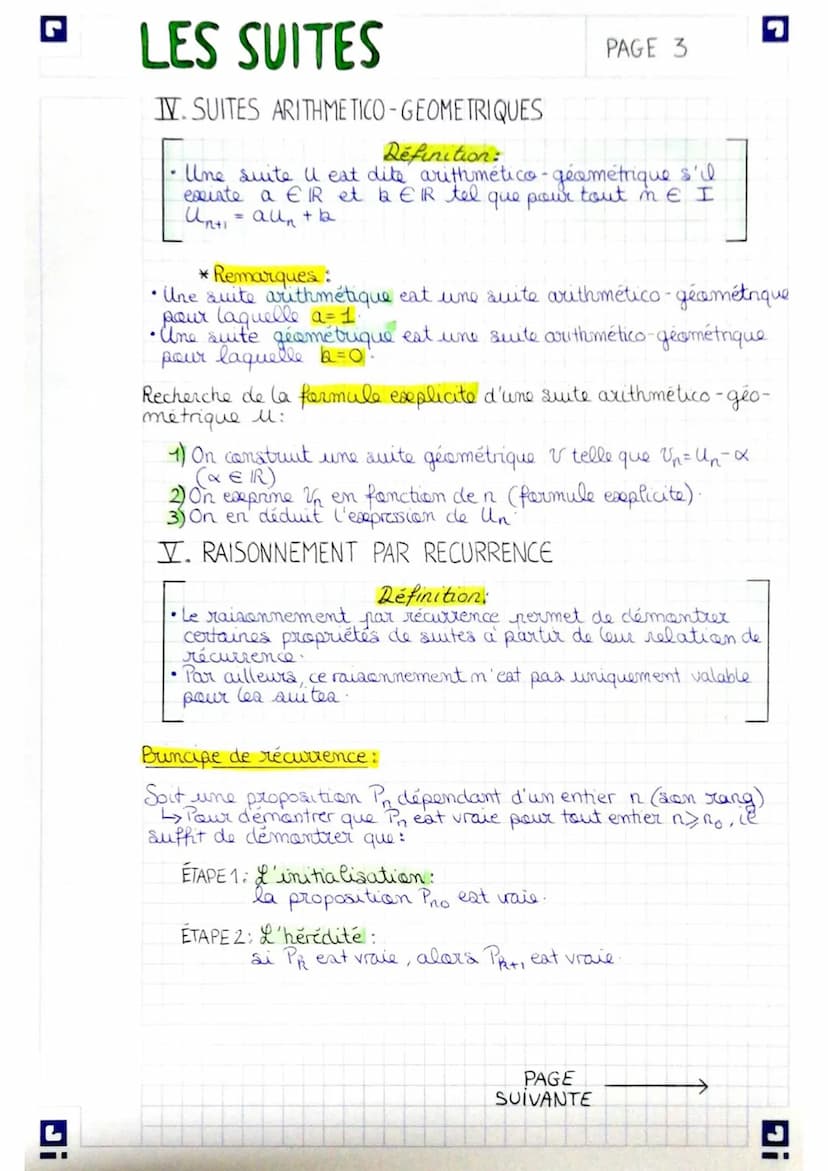 LES SUITES
PAGE 3
IV. SUITES ARITHMETICO-GEOMETRIQUES
Définition:
• Une suite U est dite arithmético-géométrique s'il
existe a ∈ ℝ et b ∈ ℝ tel que pour tout n ∈ I
Uₙ₊₁ = aUₙ + b
* Remarques:
• Une suite arithmétique est une suite arithmético-géométrique
pour laquelle a=1.
• Une suite géométrique est une suite arithmético-géométrique
pour laquelle b=0.
Recherche de la formule explicite d'une suite arithmético-géo-
métrique U:
1) On construit une suite géométrique V telle que Vₙ=Uₙ-α
(α ∈ ℝ)
2) On exprime Vₙ en fonction de n (formule explicite).
3) On en déduit l'expression de Uₙ.
V. RAISONNEMENT PAR RECURRENCE
Définition:
• Le raisonnement par récurrence permet de démontrer
certaines propriétés de suites à partir de leur relation de
récurrence.
• Par ailleurs, ce raisonnement n'est pas uniquement valable
pour les suites.
Principe de récurrence:
Soit une proposition Pₙ dépendant d'un entier n (son rang)
↳ Pour démontrer que Pₙ est vraie pour tout entier n⩾n₀, il
suffit de démontrer que:
ÉTAPE 1: L'initialisation:
la proposition Pn₀ est vraie.
ÉTAPE 2: L'hérédité:
si Pₖ est vraie, alors Pₖ₊₁ est vraie.
PAGE
SUIVANTE →